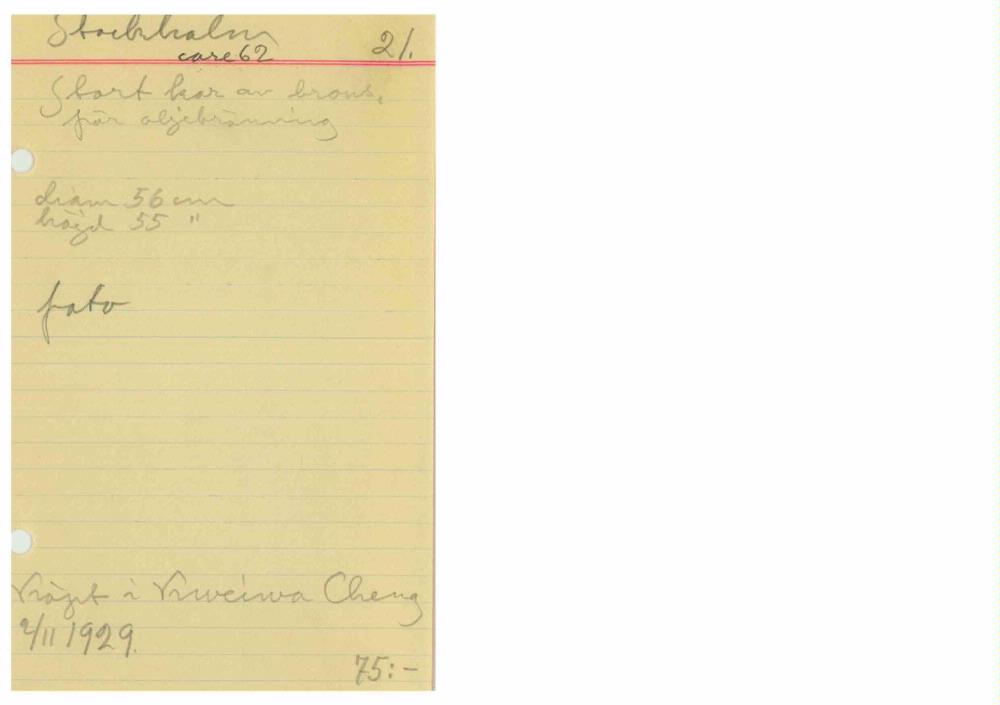 Stockholm
case 62
21.
Stort kar av brons,
för oljebränning
diam 56 cm
höjd 55 "
foto
Köpt i Kweiwa Cheng
2/11 1929.
75:-